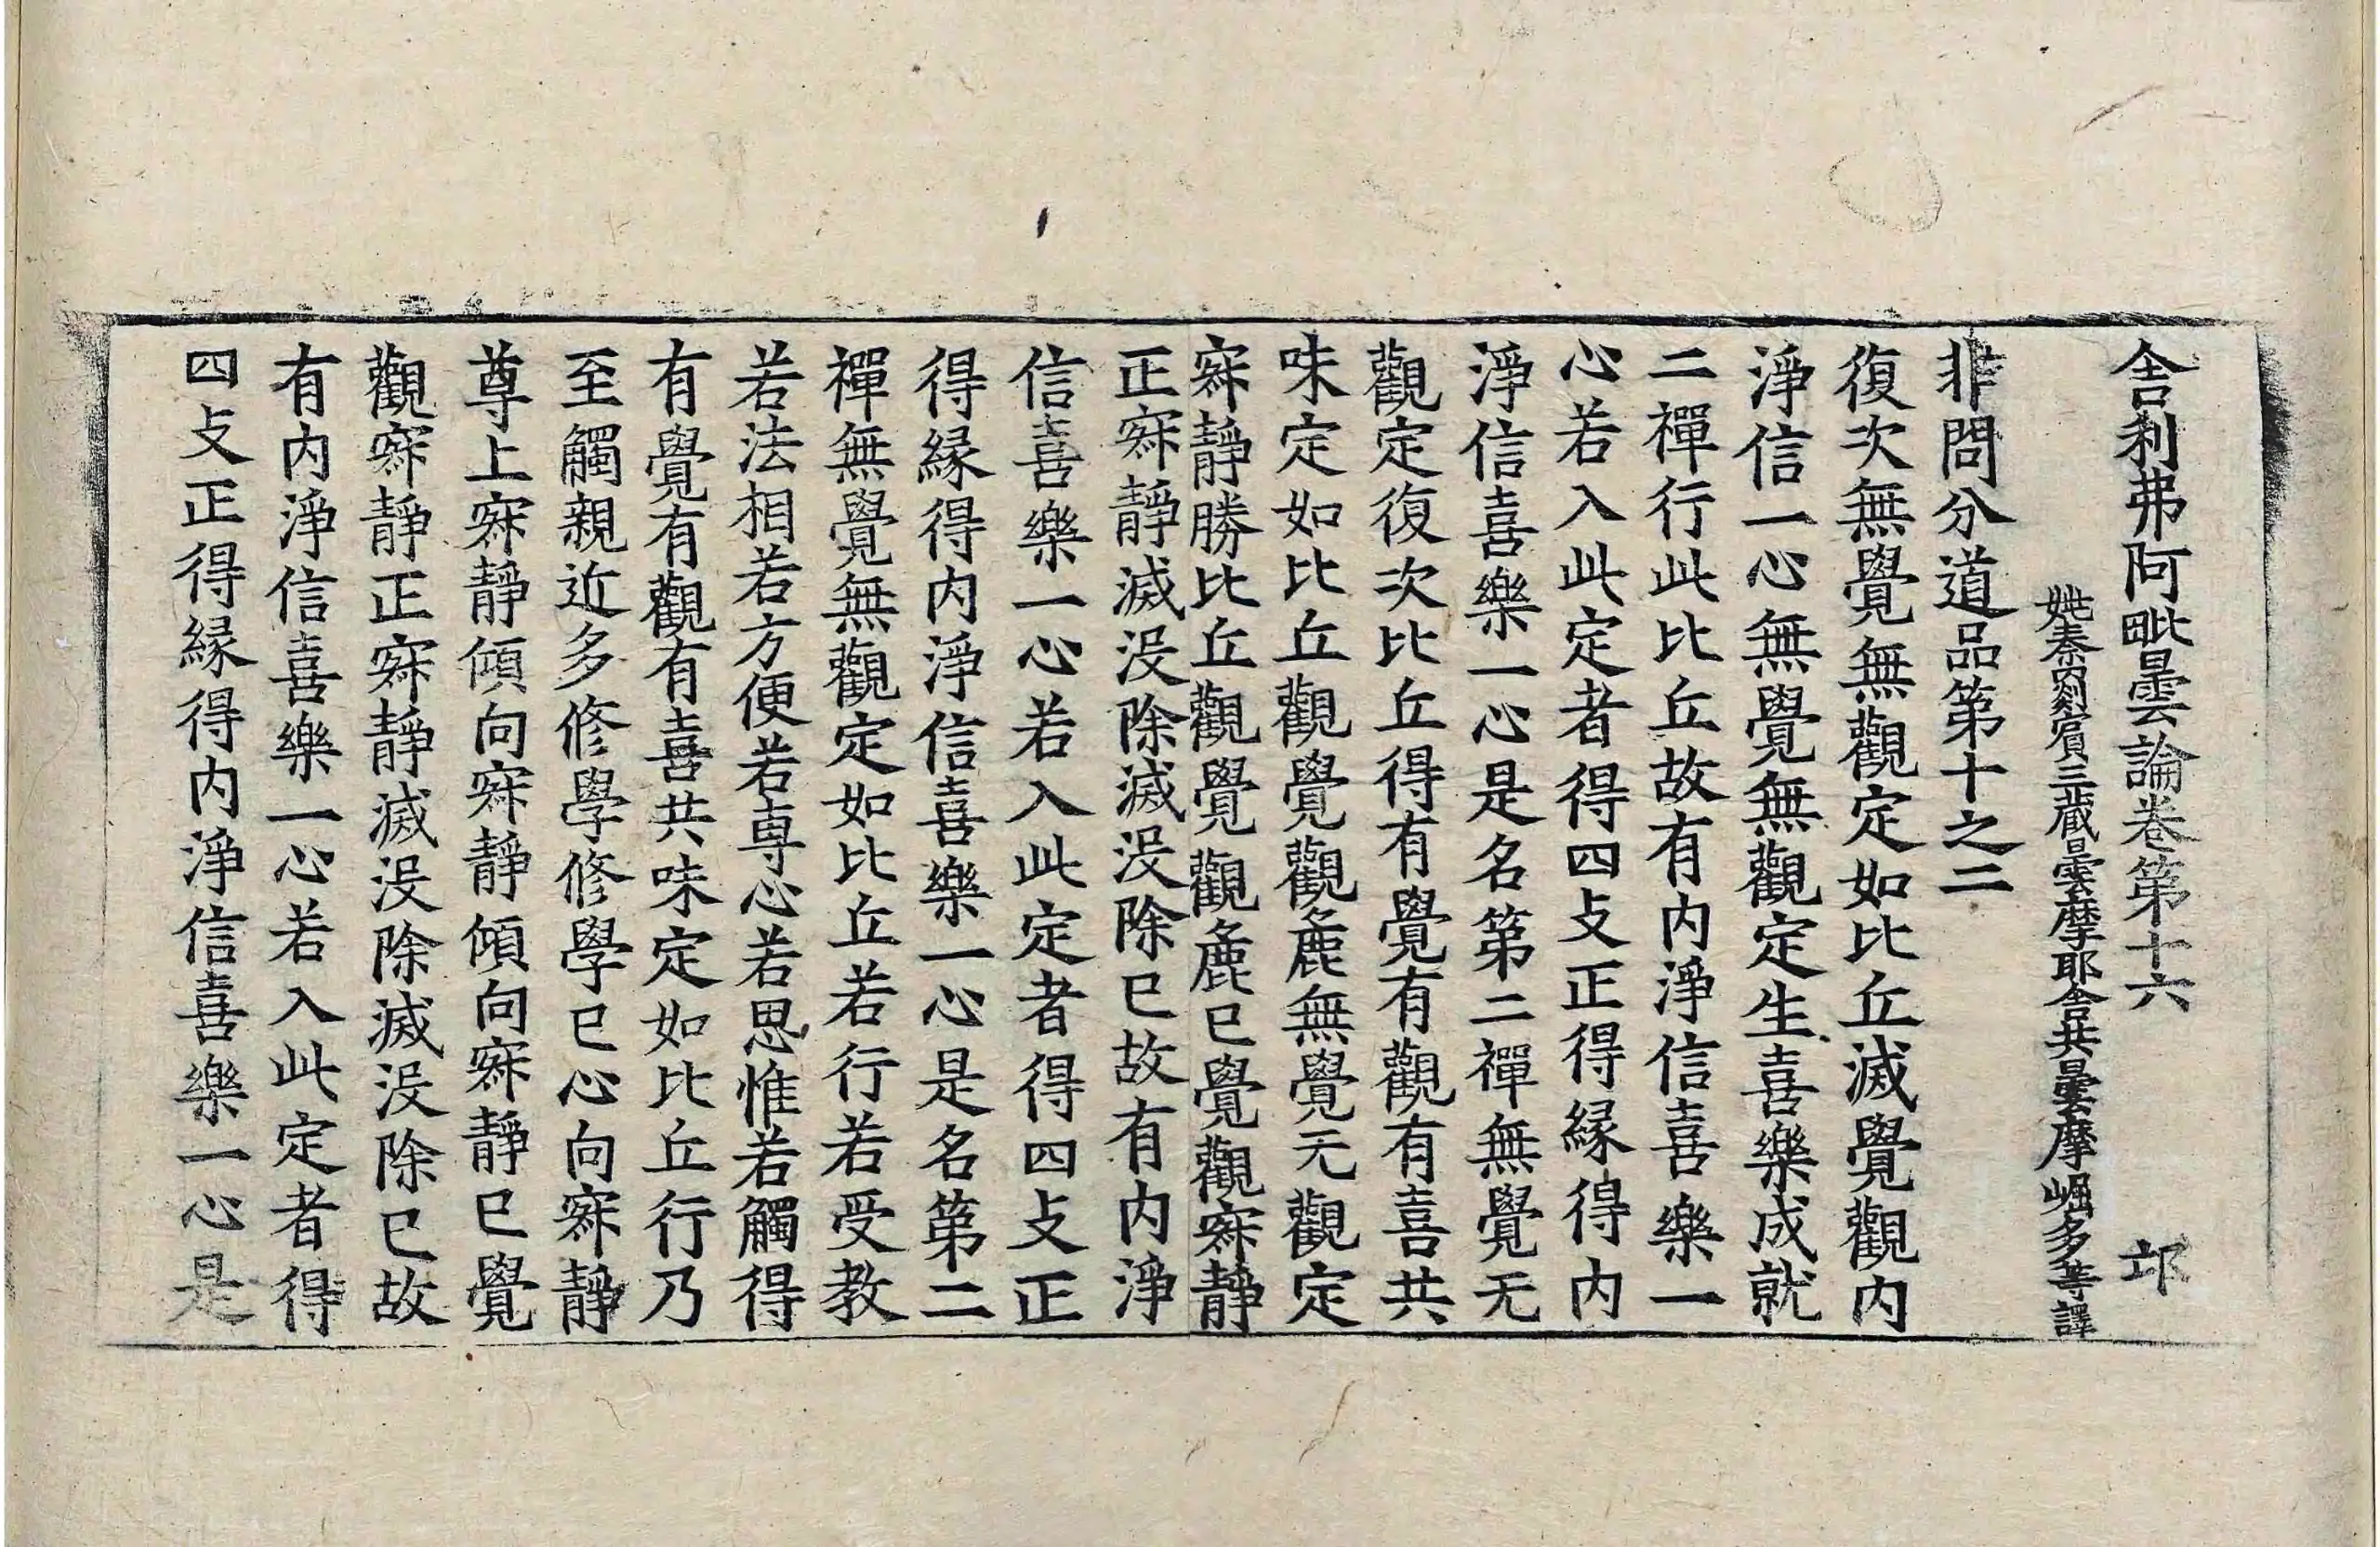 舎利弗阿毗曇論卷第十六 邙
姚秦罽賓三蔵曇摩耶舎共曇摩崛多等譯
非問分道品第十之二
復次無覺無觀定如比丘滅覺觀内
淨信一心無覺無觀定生喜樂成就
二禪行此比丘故有内淨信喜樂一
心若入此定者得四攴正得縁得内
淨信喜樂一心是名第二禪無覺无
觀定復次比丘得有覺有觀有喜共
味定如比丘觀覺觀麁無覺无觀定
寂靜勝比丘觀覺觀麁已覺觀寂靜
正寂靜滅没除滅没除已故有内淨
信喜樂一心若入此定者得四攴正
得縁得内淨信喜樂一心是名第二
禪無覺無觀定如比丘若行若受教
若法相若方便若專心若思惟若觸得
有覺有觀有喜共味定如比丘行乃
至觸親近多修學修學已心向寂靜
尊上寂靜傾向寂靜傾向寂靜已覺
觀寂靜正寂靜滅没除滅没除已故
有内淨信喜樂一心若入此定者得
四攴正得縁得内淨信喜樂一心是